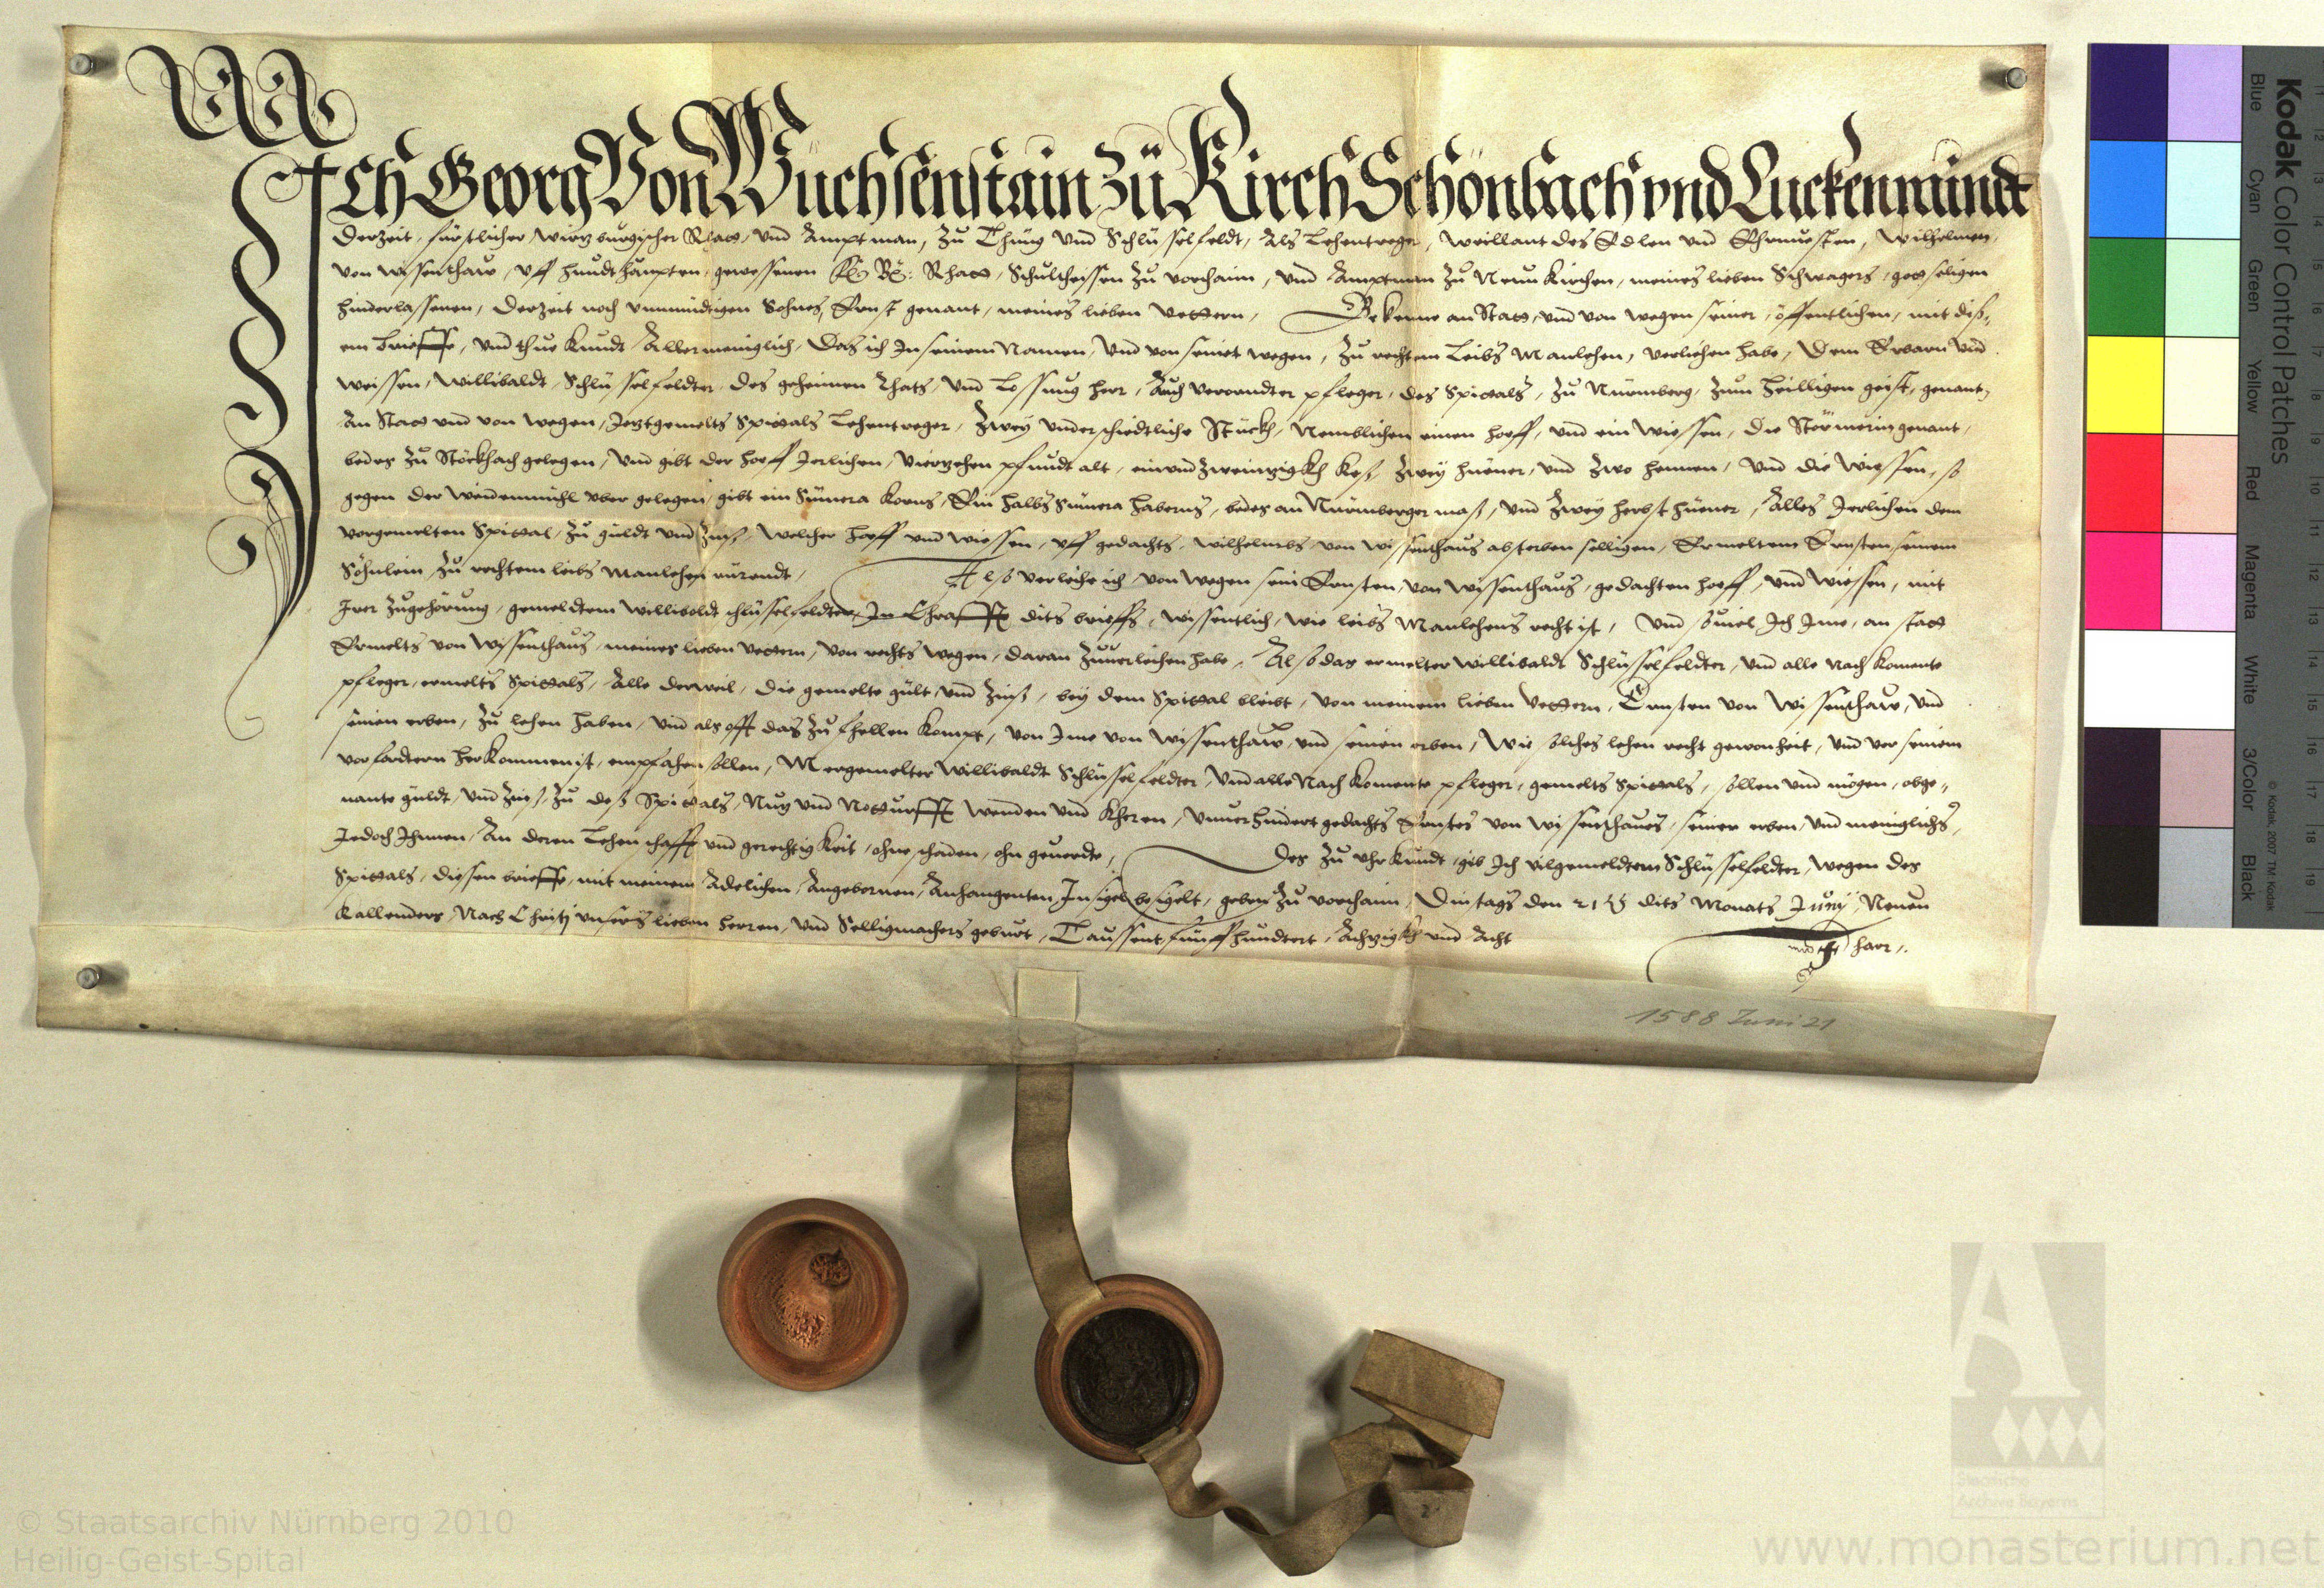 Ich Georg Von Wuchsenstain zu Kirch Schönbach vnd Luckenmündt
Derzeit, fürstlicher, Wirtzburgischer Rhatt, vnd Amptman, zu Thüng vnd Schlüsselfeldt, Als Lehentreger, Weillant des Edlen vnd Ehrnuesten, Wilhelmen,
von Wissenthaw, vff hundtshaupten, gewessenen Rhatt, Schultheissen zu vorchaim, vnd Amptman zu Neunkirchen, meines lieben Schwagers, gott seligen
hinderlassenen, Derzeit noch vnmündigen Sohnes, Ernst genant, meines lieben Vettern, Bekenne an Statt, vnd von wegen seiner, öffentlichen, mit diß,,
em brieffe, vnd thue kundt Allermeniglich, Das ich In seinem Namen, vnd von seinet wegen, zu rechtem Leibs Manlehen, verliehen habe, Dem Erbarn vnd
Weissen, Willibaldt, Schlüsselfeldter, des geheimen Rhats, vnd Lossung herr, Auch verordneter pfleger, des Spittals, zu Nürmberg, zum heilligen geist, genant,
An Statt vnd von wegen, Jetztgemelts Spittals Lehentreger, Zwey vnderschiedtliche Stückh, Nemblichen einen hoeff, vnd ein Wiessen, die Störmerin genant,
bedes zu Störkhach gelegen, vnd gibt der hoeff Jerlichen, Viertzehen pfundt alt, einvndzweintzigkh keß, zwey hüener, vnd zwo hennen, vnd die Wiessen, so
gegen der Weidenmühl vber gelegen, gibt ein Sümera korns, Ein halbs Sümera haberns, bedes an Nürmberger maß, vnd zwey herbst hüener, Alles Jerlichen dem
vorgemelten Spittal, zu güldt vnd Zinß, welcher hoeff vnd wiessen, vff gedachts, Wilhelmbs von Wissenthaus absterben selligen, Ermeltem Ernsten seinem
Söhnlein, zu rechtem leibs Manlehen rürendt, Also verleihe ich von wegen sein Ernsten, von Wissenthaus, gedachten hoeff, vnd Wiessen, mit
Irer zugehörung, gemeldtem Willibaldt schlüsselfeldter, In Chrafft dits brieffs, wissentlich, wie leibs Manlehens recht ist, vnd souiel Ich Ime, an statt
Ermelts von Wissenthaus, meines lieben Vettern, von rechts wegen, daran zuuerleihen habe, Also das ermelter Willibaldt Schlüsselfeldter, vnd alle nachkomente
pfleger, ermelts Spittals, Alle derweil, die gemelte gült, vnd Zinß, bey dem Spittal bleibt, von meinem lieben Vettern, Ernsten von Wissenthaw, vnd
seinen erben, zu lehen haben, vnd als offt das zu fhellen kompt, von Ime von Wissenthaw, vnd seinen erben, Wie solches lehen recht gewonheit, vnd vor seinem
vorfordtern herkommen ist, empfahen sollen, Mergemelter Willibaldt Schlüsselfeldter, vnd alle Nachkomente pfleger, gemelts Spittals, sollen vnd mögen, obge,,
nante güldt, vnd Zins, zu deß Spittals, Nutz vnd Notturfft wenden vnd kheren, vnuerhindert gedachts Ernstes von Wissenthaues, seiner erben, vnd meniglichs,
Jedoch Ihnnen, An deren Lehenschafft vnd gerechtigkeit, ohne schaden, ohn geuerdte, Des zu vhrkundt, gib Ich vilgemeldtem Schlüsselfeldter, wegen des
Spittals, diessen brieffe, mit meinem Adelichen, Angebornen, Anhangenten, Insigel besigelt, geben zu vorchaim, Dinstags den 21 dits Monats Juny, Neuen
Kallenders, Nach Christj vnsers lieben herren, vnd Selligmachers geburt, Taussent, fünffhundtert, Achtzigkh vnd Acht
Jaar,.
1588 Juni 21
Kodak Color Control Patches
Blue Cyan Green Yellow Red Magenta White 3/Color Black
© Kodak, 2007 TM: Kodak
11 12 13 14 15 16 17 18 19
© Staatsarchiv Nürnberg 2010
Heilig-Geist-Spital
A
Staatliche
Archive Bayerns
www.monasterium.net